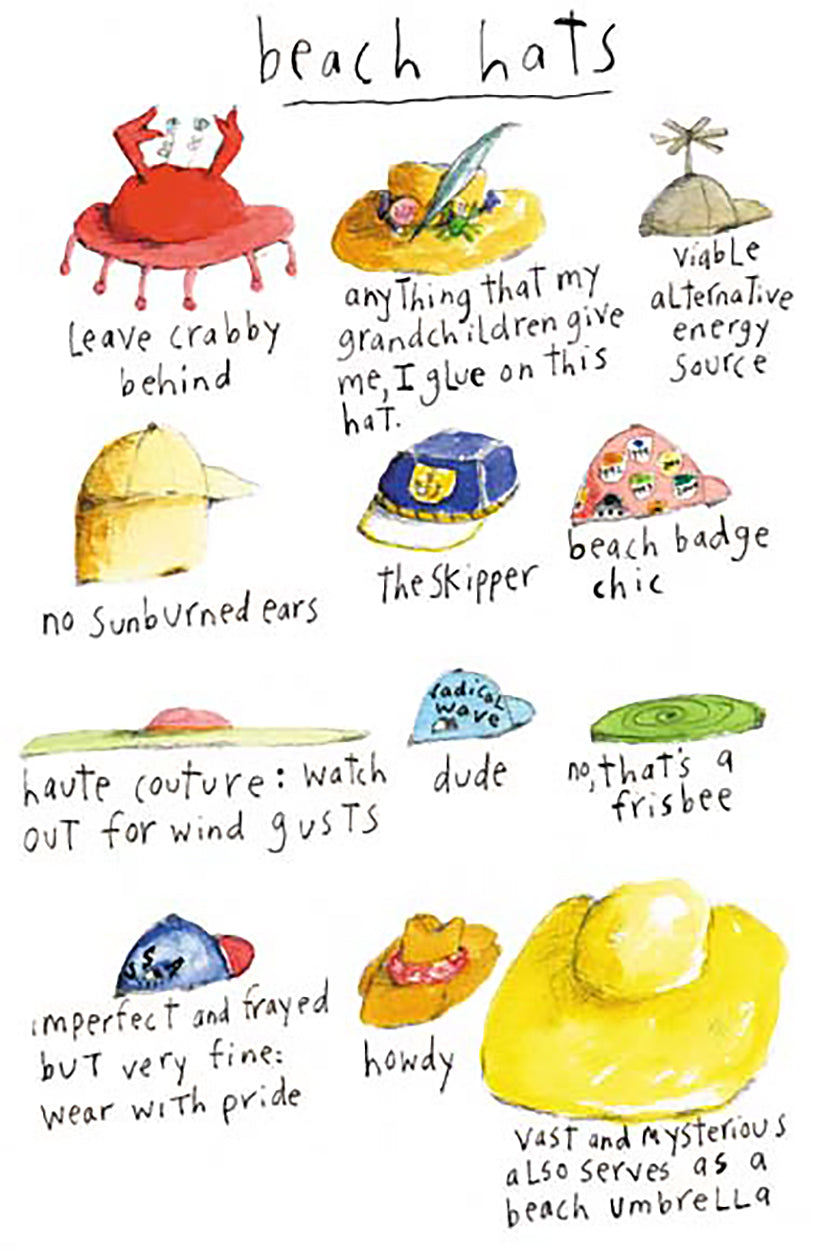 beach hats
Leave crabby
behind
anything that my
grandchildren give
me, I glue on this
hat.
viable
alternative
energy
source
no sunburned ears
the skipper
1992
beach badge
chic
haute couture: watch
out for wind gusts
radical
wave
dude
no, that's a
frisbee
imperfect and frayed
but very fine:
wear with pride
howdy
vast and mysterious
also serves as a
beach umbrella